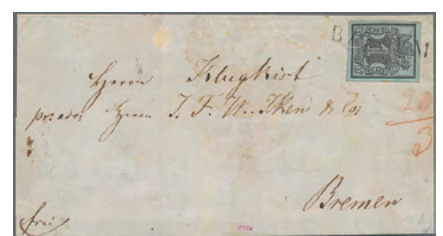 Herrn Klugkist
pr. adr. Herrn J. F. W. Iken & Co
Bremen
frei